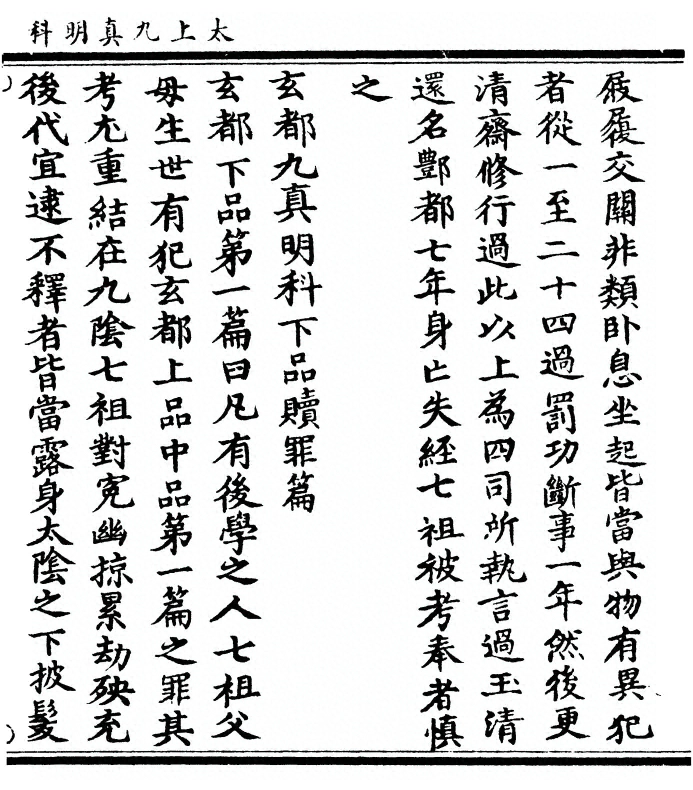 太上九真明科
屐履交關非類卧息坐起皆當與物有異犯
者從一至二十四過罰功斷事一年然後更
清齋修行過此以上為四司所執言過玉清
還名酆都七年身亡失經七祖被考奉者慎
之
玄都九真明科下品贖罪篇
玄都下品第一篇曰凡有後學之人七祖父
母生世有犯玄都上品中品第一篇之罪其
考尤重結在九陰七祖對寃幽掠累劫殃充
後代宜逮不釋者皆當露身太陰之下披髮